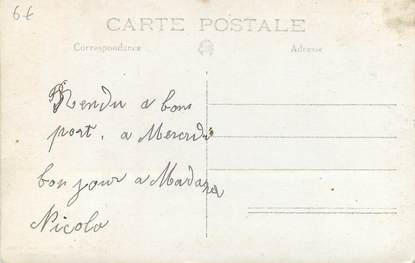 6€
CARTE POSTALE
Correspondance Adresse
Rendu a bon
port. a Mercredi
bonjour a Madame
Nicolo